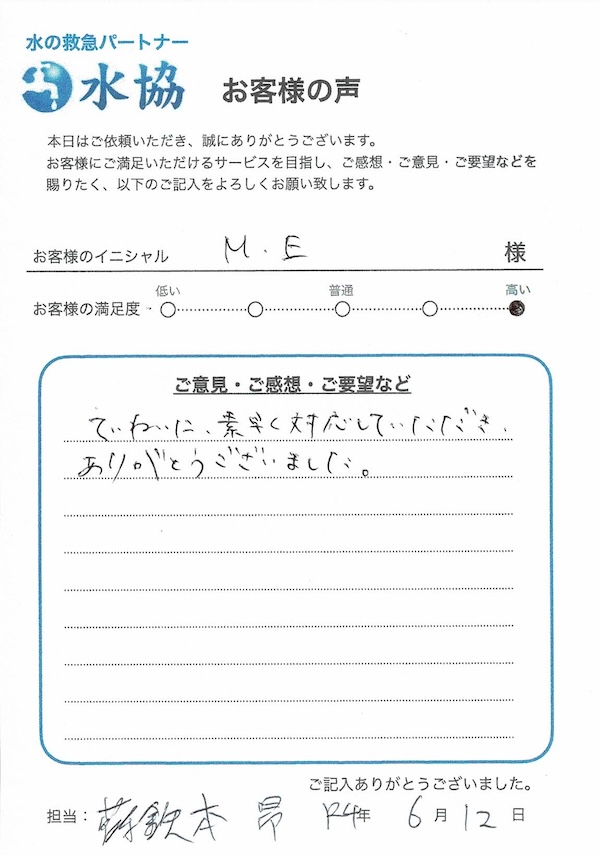 水の救急パートナー
水協 お客様の声
本日はご依頼いただき、誠にありがとうございます。
お客様にご満足いただけるサービスを目指し、ご感想・ご意見・ご要望などを
賜りたく、以下のご記入をよろしくお願い致します。
お客様のイニシャル M.E 様
低い 普通 高い
お客様の満足度
ご意見・ご感想・ご要望など
ていねいに、素早く対応していただき、
ありがとうございました。
ご記入ありがとうございました。
担当： 本 昂 R4年 6月 12日